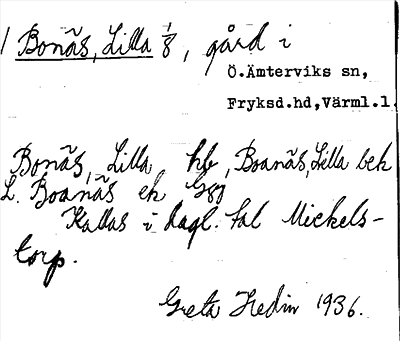 1 Bonäs, Lilla 1/8, gård i
Ö.Ämterviks sn,
Fryksd.hd,Värml.l.
Bonäs, Lilla, hb, Boanäs, Lilla bek
L. Boanäs ek Ggg
Kallas i dagl. tal Mickels-
torp.
Greta Hedin 1936.